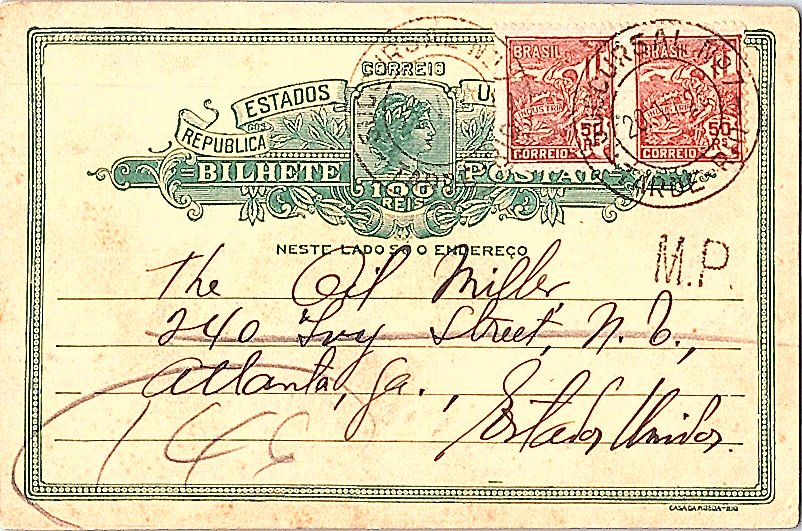 CORREIO
ESTADOS U
REPUBLICA
BILHETE POSTAL
100
REIS
NESTE LADO SÓ O ENDEREÇO
BRASIL
INDUSTRIA
50
Rs
CORREIO
BRASIL
INDUSTRIA
50
Rs
CORREIO
M.P.
The Oil Miller,
240 Ivy Street, N. E.,
Atlanta, Ga.,
Estados Unidos.
CASA DA MOEDA-RIO